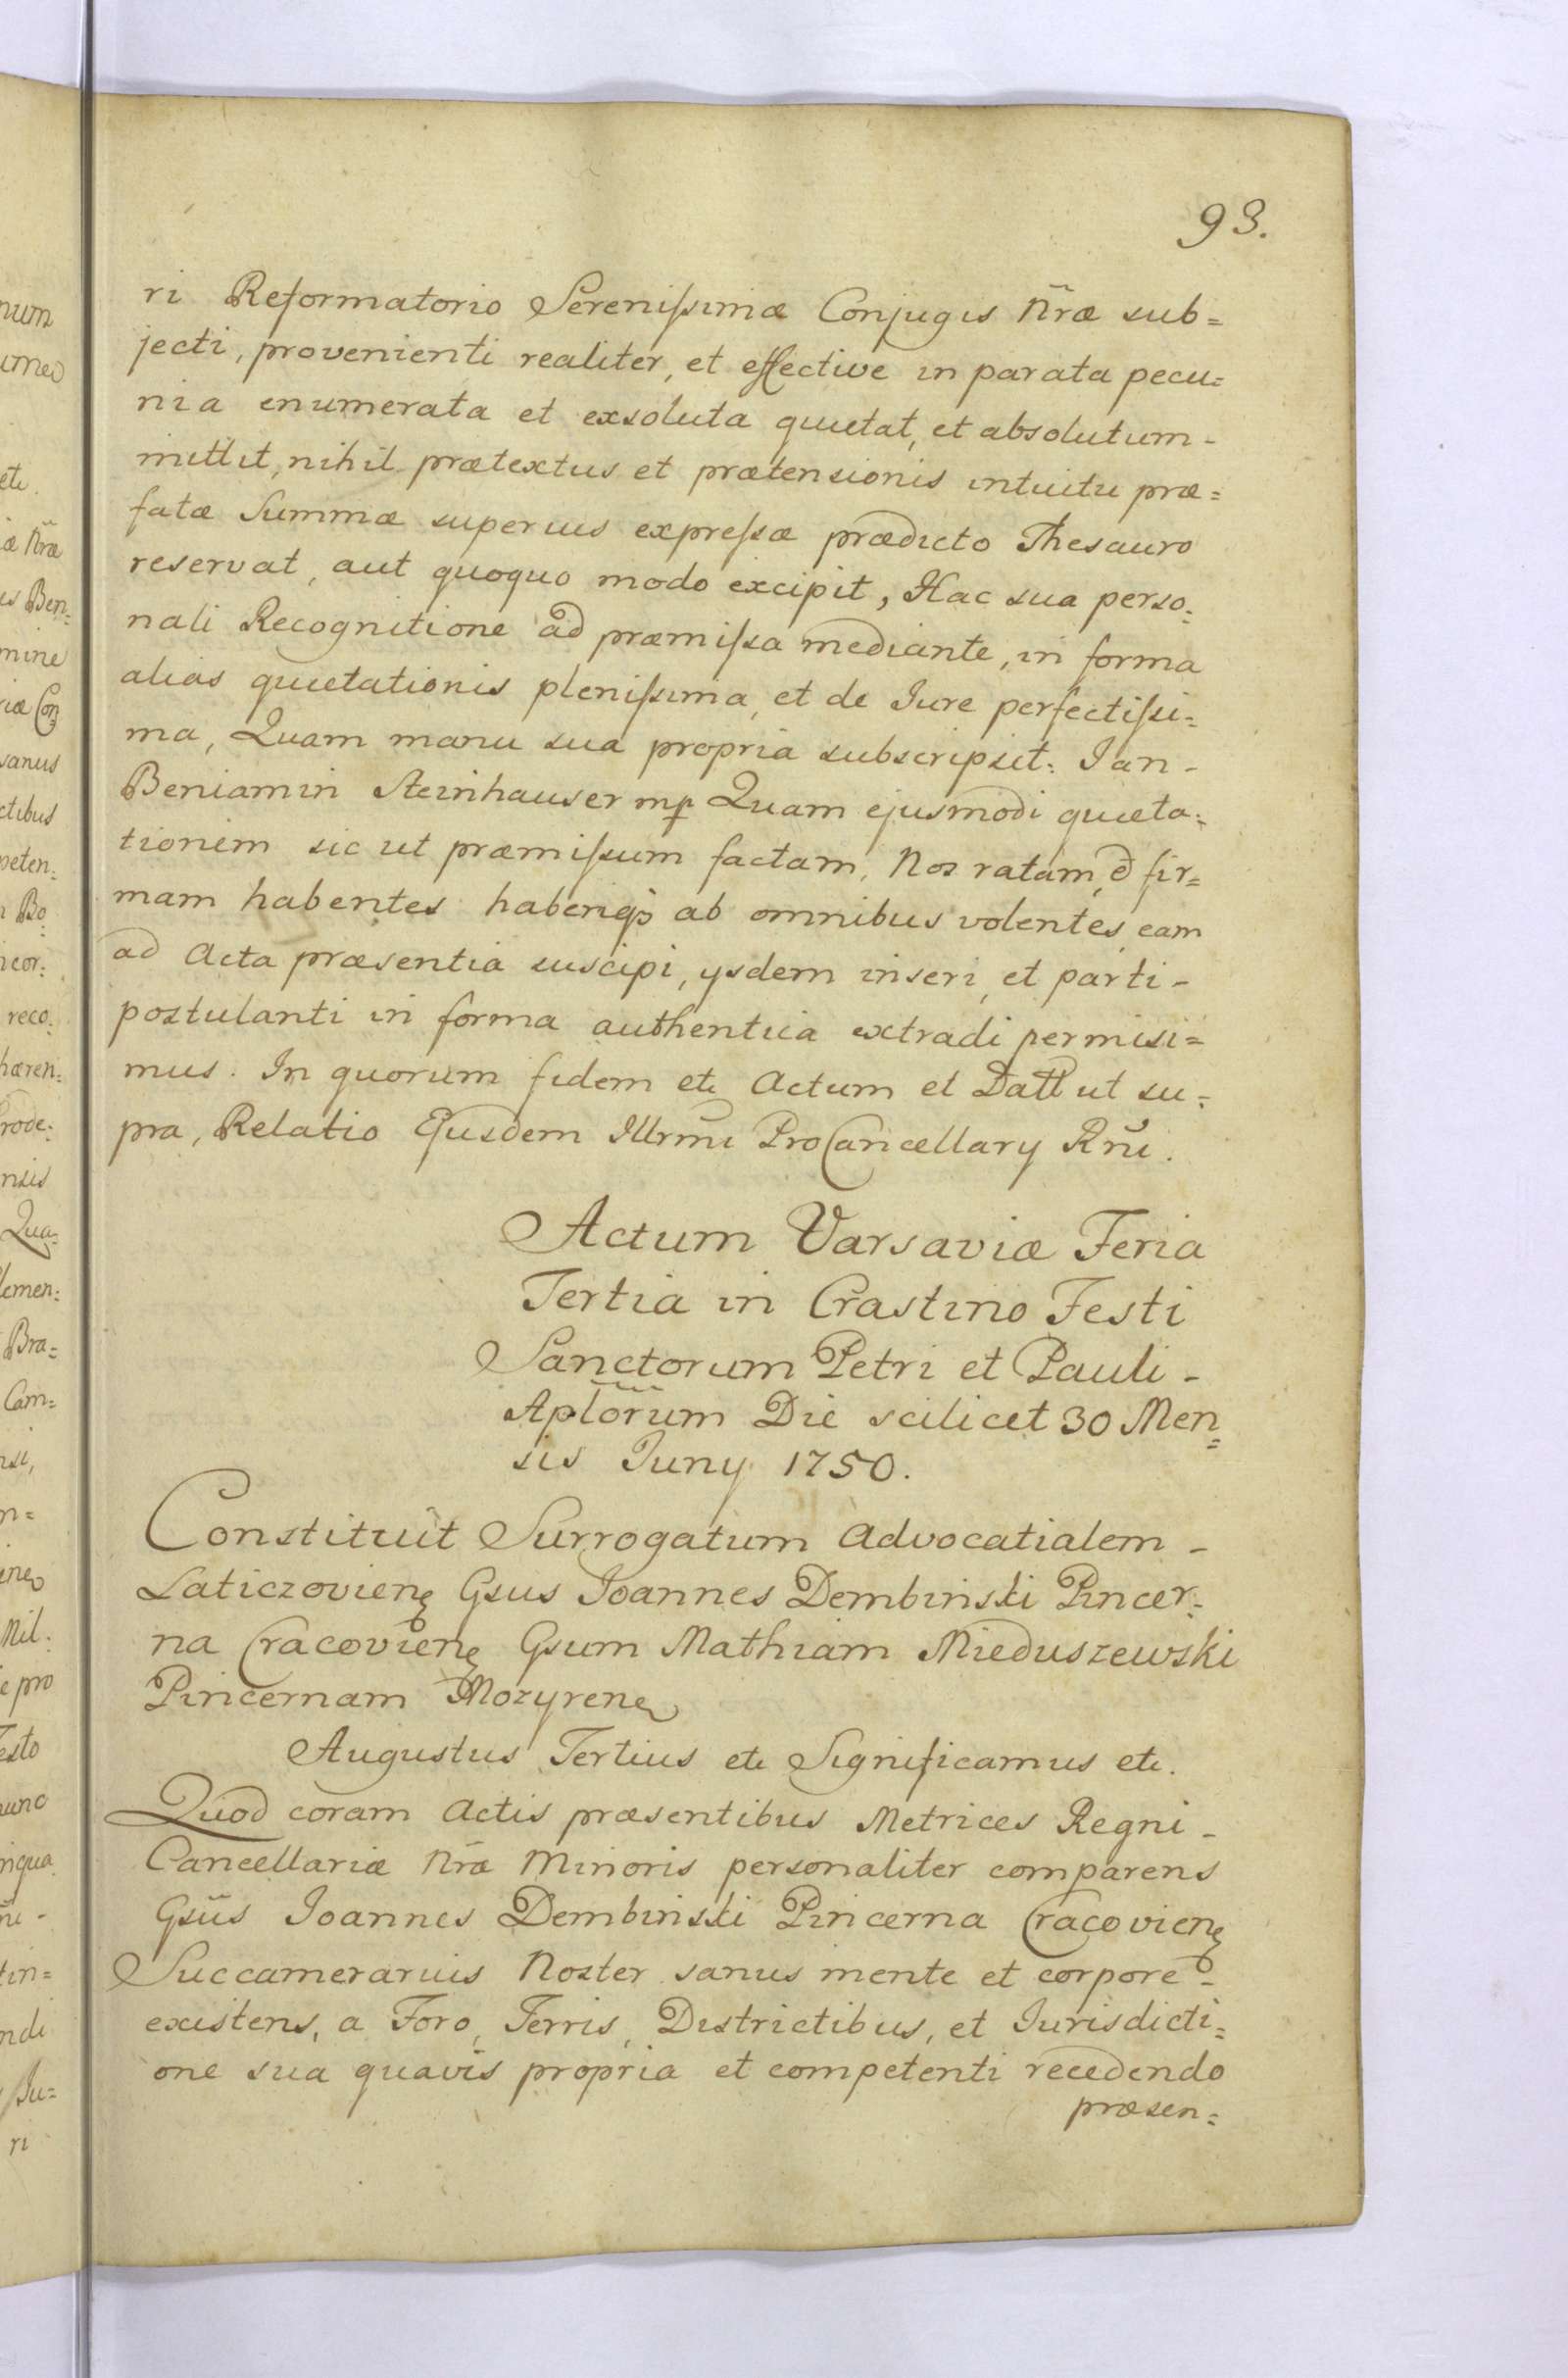 93.
ri Reformatorio Serenissimæ Conjugis Nr̃æ sub=
jecti, provenienti realiter, et effective in parata pecu=
nia enumerata et exsoluta quietat, et absolutum -
mittit, nihil prætextus et prætensionis intuitu præ=
fatæ Summæ superius expressæ prædicto Thesauro
reservat, aut quoquo modo excipit, Hac sua perso=
nali Recognitione ad præmissa mediante, in forma
alias quietationis plenissima, et de Jure perfectissi=
ma, Quam manu sua propria subscripsit: Jan -
Beniamin Steinhauser mp Quam ejusmodi quieta=
tionem sic ut præmissum factam, Nos ratam, et fir=
mam habentes haberiq3 ab omnibus volentes, eam
ad Acta præsentia suscipi, ysdem inseri, et parti -
postulanti in forma authentica extradi permisi=
mus. In quorum fidem etc Actum et Datt ut su=
pra, Relatio Ejusdem Illrmi ProCancellary Rñi.
Actum Varsaviæ Feria
Tertia in Crastino Festi
Sanctorum Petri et Pauli -
Aplõrum Die scilicet 30 Men=
sis Juny 1750.
Constituit Surrogatum Advocatialem -
Laticzovien̨ Gsus Joannes Dembinski Pincer=
na Cracovien̨ Gsum Mathiam Mieduszewski
Pincernam Mozyren̨
Augustus Tertius etc Significamus etc.
Quod coram Actis præsentibus Metrices Regni -
Cancellariæ Nr̃æ Minoris personaliter comparens
Gsus Joannes Dembinski Pincerna Cracovien̨
Succamerarius Noster sanus mente et corpore -
existens, a Foro, Terris, Districtibus, et Jurisdicti=
one sua quavis propria et competenti recedendo
præsen=